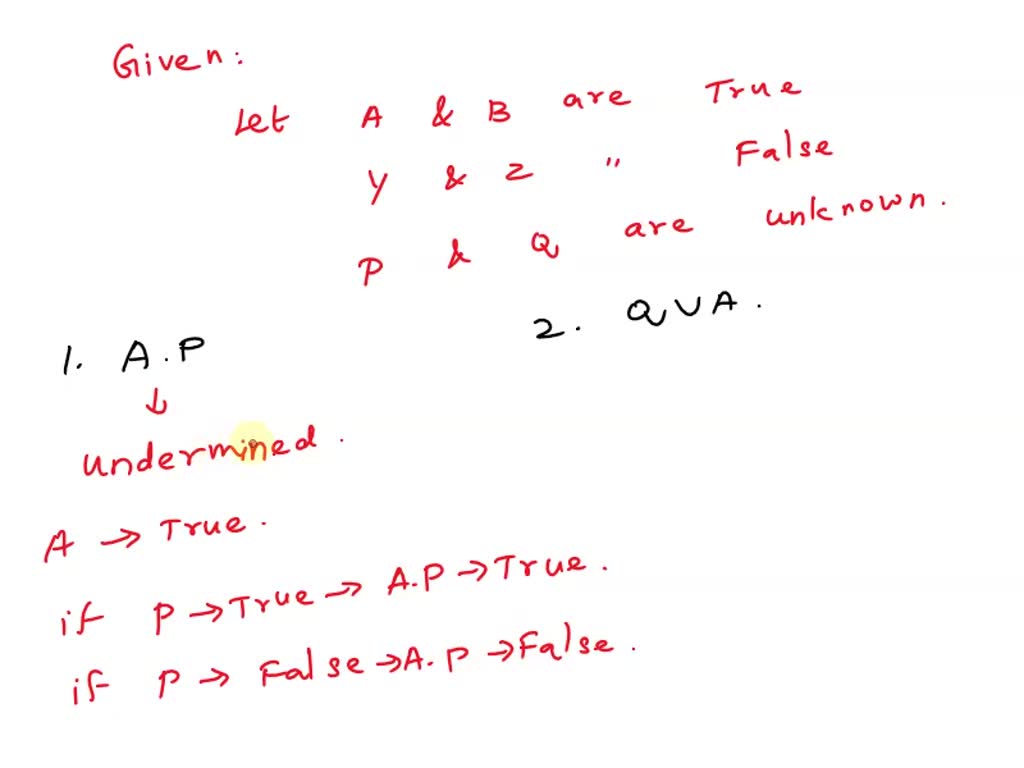 Given:
Let A & B are True
Y & Z " False
P & Q are unknown.
1. A.P
2. Q V A.
↓
Undermined.
A → True.
if P → True → A.P → True.
if P → False → A.P → False.